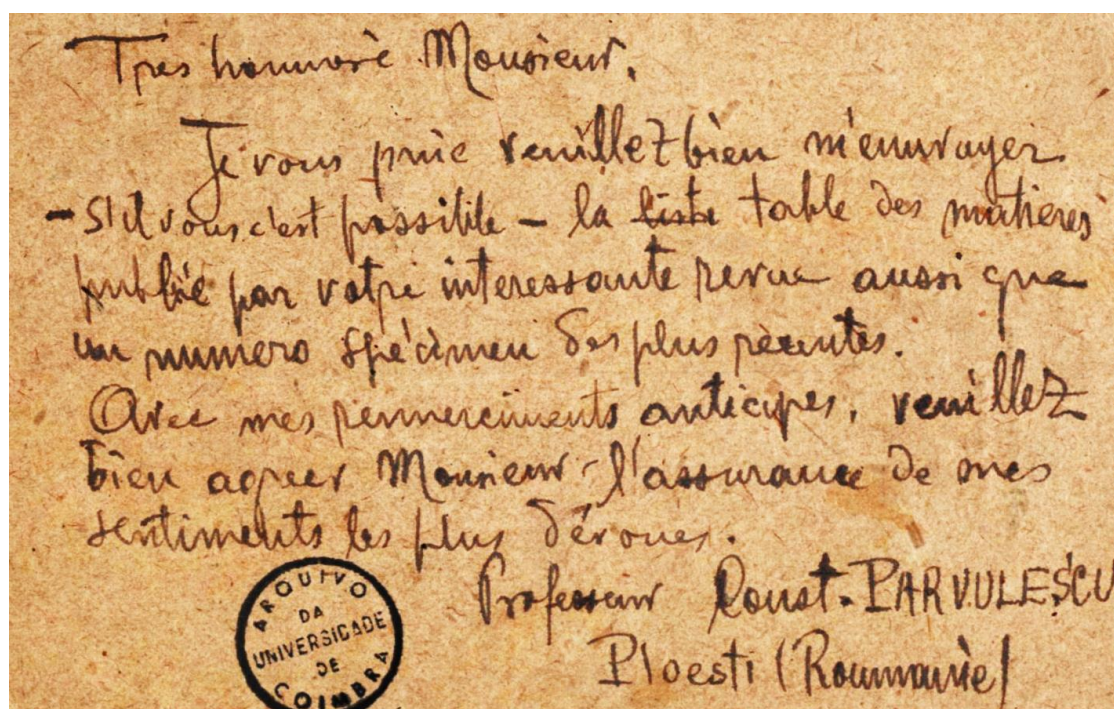 Tres honnoré Monsieur.
Je vous prie veuillez bien m'envoyer
- S'il vous c'est possible - la liste table des matieres
publié par votre interessante revue aussi que
un numero spécimen des plus recentes.
Avec mes remmerciments anticipes, veuillez
bien agreer Monsieur l'assurance de mes
sentiments les plus dévoues.
Professeur Const. PARVULESCU
Ploesti (Roumanie)
ARQUIVO
DA
UNIVERSIDADE
DE
COIMBRA